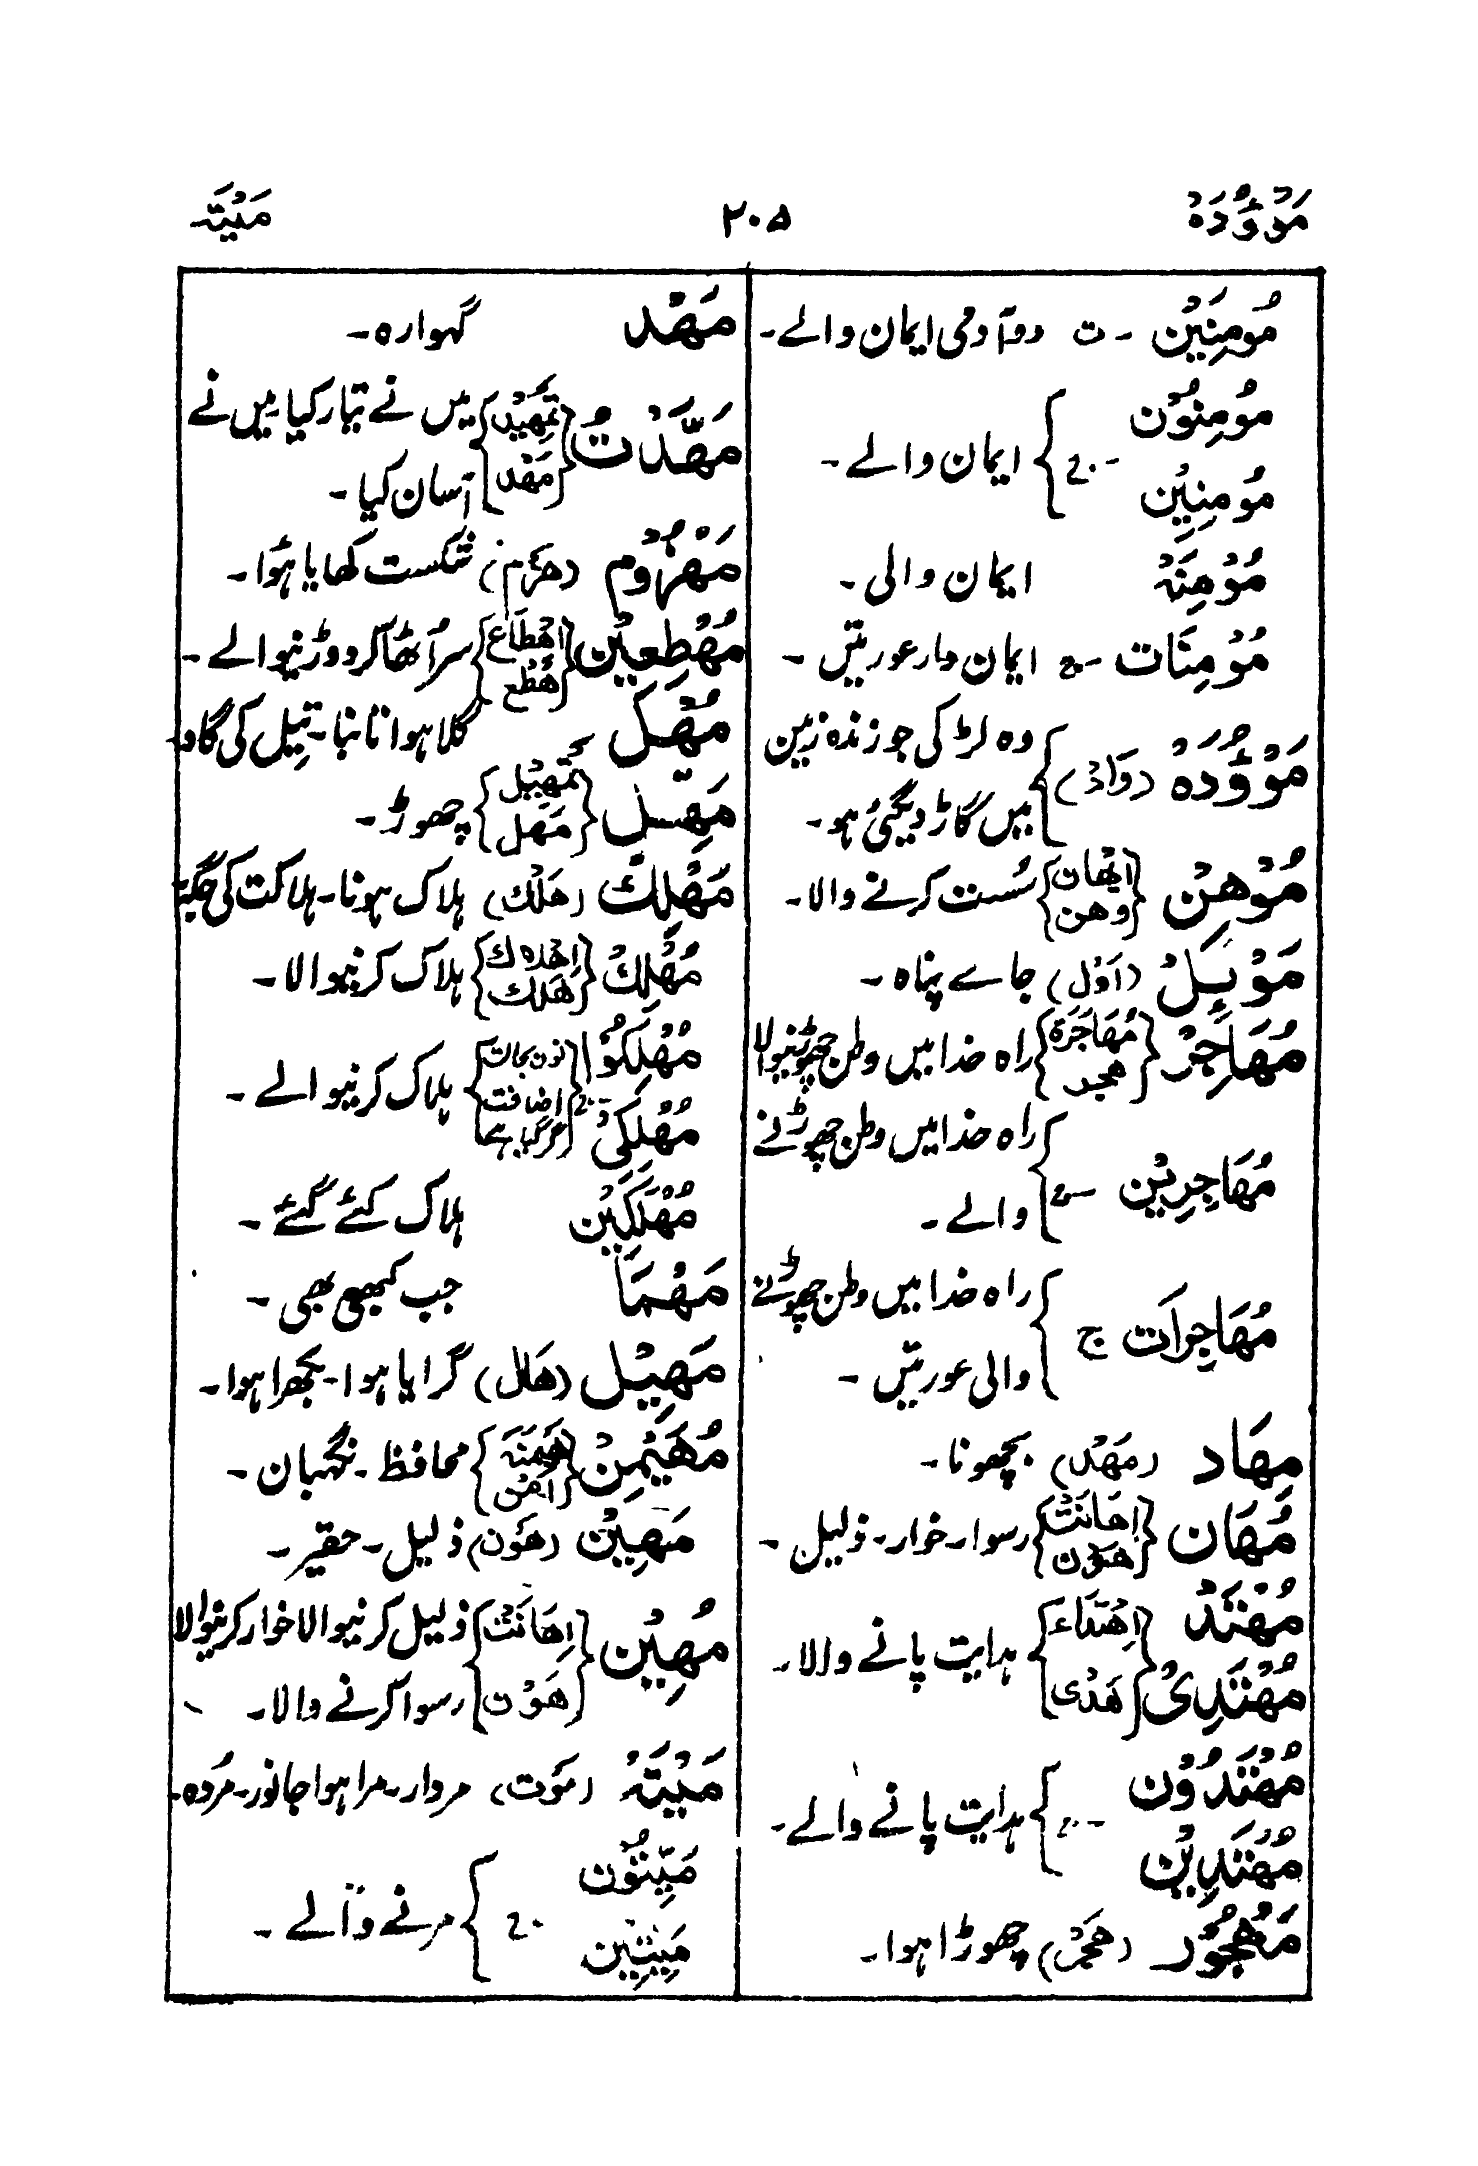 مَوْؤُدَہُ ۲۰۵ مَیْتَہ
مُومِنَیْنِ ۔ ت دو آدمی ایمان والے۔
مُومِنُوْن
۔ ج ایمان والے۔
مُومِنِیْن
مُؤْمِنَہ ایمان والی۔
مُؤْمِنَات ۔ ج ایمان دار عورتیں ۔
مَوْؤُدَہُ (وَأد) وہ لڑکی جو زندہ زمین
میں گاڑ دیگئی ہو۔
مُوْھِنُ {ایھان وھن} سُست کرنے والا۔
مَوْئِلُ (اَوْل) جاے پناہ ۔
مُھَاجِرُ {مُھَاجَرَۃ ھجد} راہ خدا میں وطن چھوڑنیوالا
مُھَاجِرِیْن ۔ ج راہ خدا میں وطن چھوڑنے
والے ۔
مُھَاجِرَات ج راہ خدا میں وطن چھوڑنے
والی عورتیں ۔
مِھَاد (مَھْد) بچھونا ۔
مُھَان {اِھَانَتْ ھَوْن} رسوا۔ خوار۔ ذلیل ۔
مُھْتَد
{اِھْتِدَاء ھَدْی} ہدایت پانے والا۔
مُھْتَدِیُ
مُھْتَدُوْن
۔ ج ہدایت پانے والے۔
مُھْتَدِیْن
مَھْجُوْر (ھَجْر) چھوڑا ہوا۔
مَھْد گہوارہ۔
مَھَّدْتُ {تَمْھِیْد مَھْد} میں نے تیار کیا میں نے
آسان کیا ۔
مَھْزُوْم (ھَزْم) شکست کھایا ہُوا ۔
مُھْطِعِیْن {اِھْطَاع ھَطْع} سر اُٹھا کر دوڑنیوالے ۔
مُھْل گلا ہوا تانبا۔ تیل کی گاد
مَھِّلْ {تَمْھِیْل مَھْل} چھوڑ۔
مَھْلِكَ (ھَلْك) ہلاک ہونا۔ ہلاکت کی جگہ
مُھْلِكَ {اِھْلَاك ھَلْك} ہلاک کرنیوالا۔
مُھْلِكُوْا
۔ ج {نون بحالت اضافت گر گیا ہے} ہلاک کرنیوالے ۔
مُھْلِكِیْ
مُھْلَكِیْن ہلاک کئے گئے ۔
مَھْمَا جب کبھی بھی ۔
مَھِیْل (ھَال) گرایا ہوا۔ بکھرا ہوا۔
مُھَیْمِنُ {ھَیْمَنَہ اَمْن} محافظ ۔ نگہبان ۔
مَھِیْن (ھَوْن) ذلیل ۔ حقیر ۔
مُھِیْن {اِھَانَتْ ھَوْن} ذلیل کرنیوالا خوار کرنیوالا
رسوا کرنے والا۔
مَیْتَہُ (مَوْت) مردار۔ مرا ہوا جانور۔ مُردہ۔
مَیِّتُوْن
ج مرنے والے ۔
مَیِّتِیْن